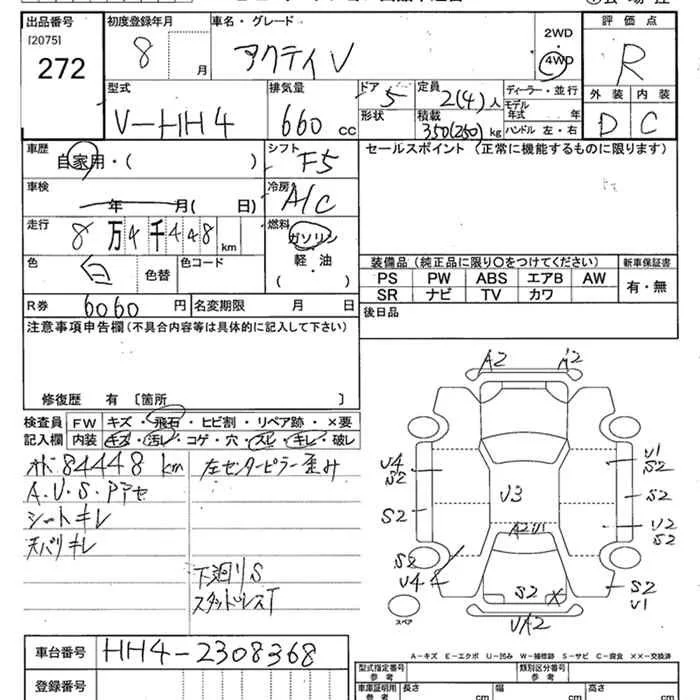 出品番号 初度登録年月 車名・グレード 評価点
[2075] 272 8 月 アクティV 2WD 4WD R
型式 排気量 ドア 定員 ディーラー・並行 外装 内装
V-HH4 660 cc 5 2(4)人 モデル年式 年 D C
形状 積載 350(250)kg ハンドル 左・右
車歴 シフト セールスポイント (正常に機能するものに限ります)
自家用・( ) F5
車検 冷房
年 月( 日) A/C
走行 燃料
8万4千448km ガソリン
軽・油
( )
色 白 色替 色コード
装備品 (純正品に限り○をつけてください) 新車保証書
PS PW ABS エアB AW 有・無
SR ナビ TV カワ
R券 6060円 名変期限 月 日 後日品
注意事項申告欄(不具合内容等は具体的に記入して下さい)
修復歴 有 〔箇所 〕
検査員 FW キズ・飛石・ヒビ割・リペア跡・×要
記入欄 内装 キズ・汚レ・コゲ・穴・スレ・キレ・破レ
84448km 左センターピラー歪み
A.U.S.Pアセ
シートキレ
天バリキレ
下廻りS
スタッドレスT
A2 A2
U4 S2 U3 U1 S2
S2 S2
A2 U1 U2 S2
S2 U4 S2 S2 U1
スペア UA2
A-キズ E-エクボ U-凹み W-補修跡 S-サビ C-腐食 XX-交換済
車台番号 HH4-2308368
登録番号
型式指定番号 参考 類別区分番号 参考
車庫証明用 参考 長さ cm 幅 cm 高さ cm